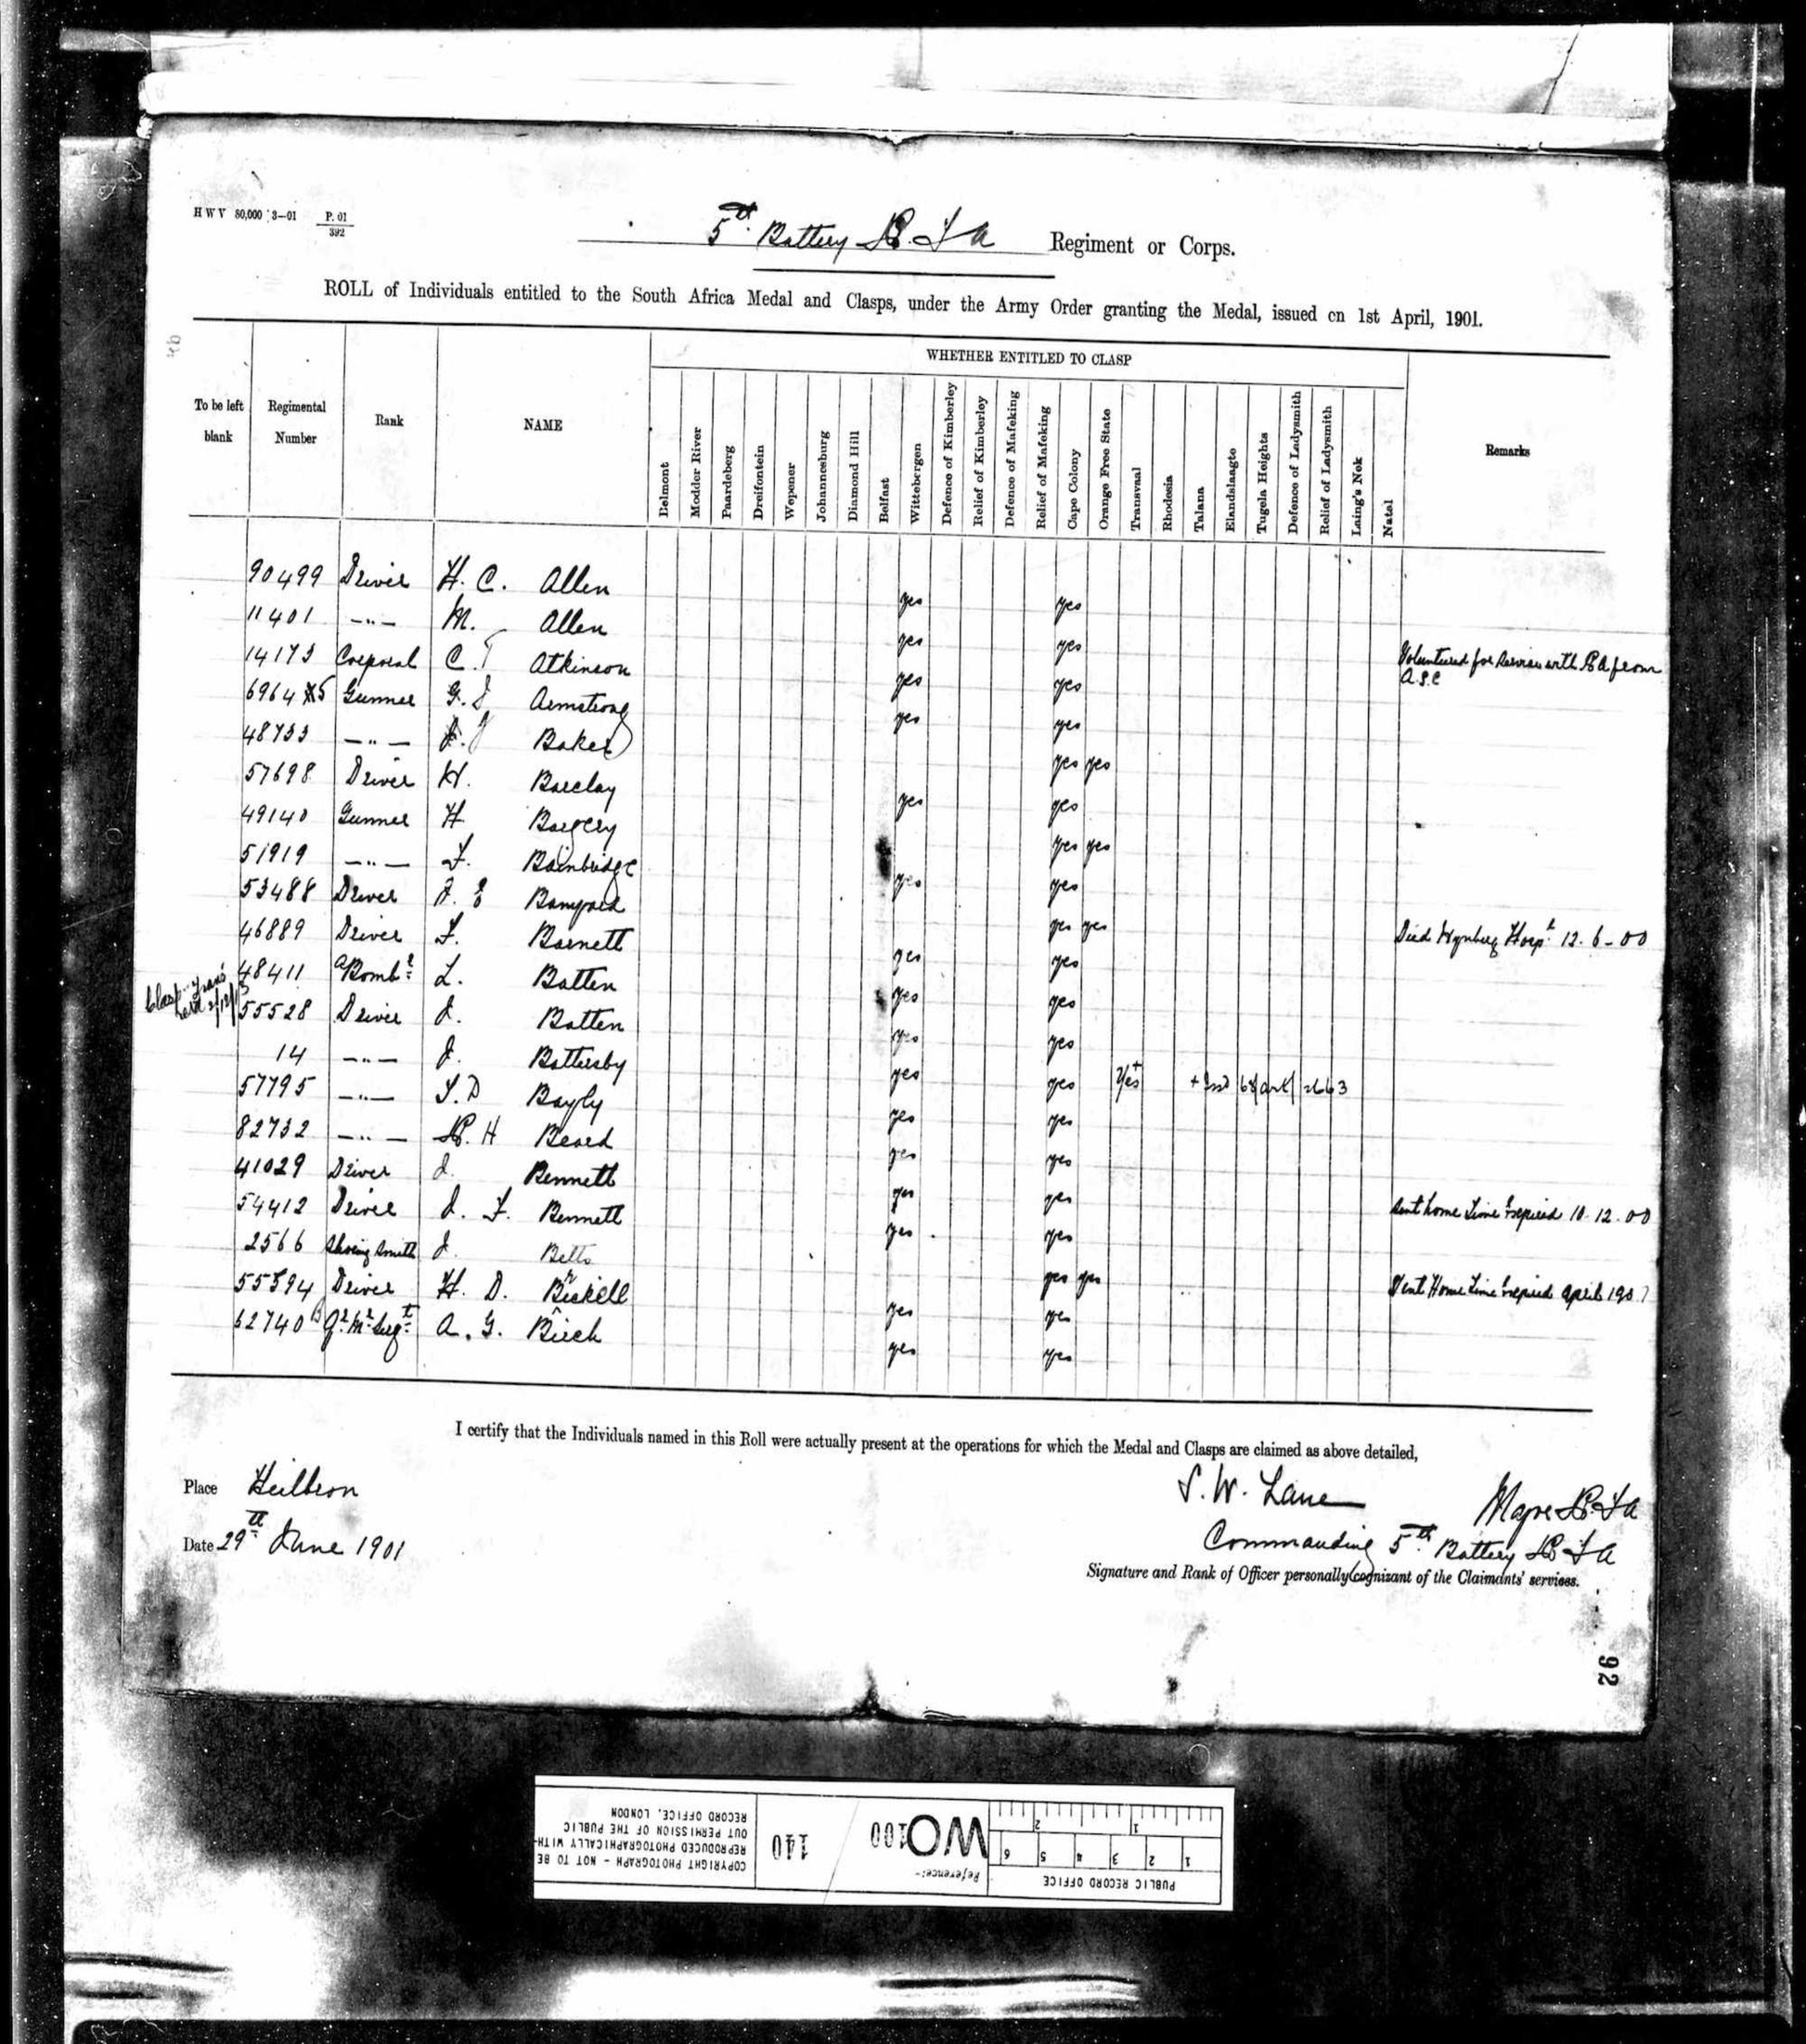 H W V 80,000 3—01 P. 01 / 392
5th Battery R. F A Regiment or Corps.
ROLL of Individuals entitled to the South Africa Medal and Clasps, under the Army Order granting the Medal, issued on 1st April, 1901.
WHETHER ENTITLED TO CLASP
To be left blank Regimental Number Rank NAME Belmont Modder River Paardeberg Dreifontein Wepener Johannesburg Diamond Hill Belfast Wittebergen Defence of Kimberley Relief of Kimberley Defence of Mafeking Relief of Mafeking Cape Colony Orange Free State Transvaal Rhodesia Talana Elandslaagte Tugela Heights Defence of Ladysmith Relief of Ladysmith Laing's Nek Natal Remarks
90499 Driver H. C. Allen yes yes
11401 —"— M. Allen yes yes
14173 Corporal C. T Atkinson yes yes Volunteered for Service with RA from A.S.C
6964 5 Gunner G. J Armstrong yes yes
48733 —"— J. Baker yes yes
57698 Driver H. Barclay yes yes
49140 Gunner H Bargery yes yes
51919 —"— F. Bainbridge yes yes
53488 Driver F. E Bampord yes yes
46889 Driver F. Barnett yes yes Died Wynberg Hospl 12. 6 - 00
48411 a Bombr L. Batten yes yes
55528 Driver J. Batten yes yes
14 —"— J. Battersby yes yes Yes+
57795 —"— S. D Bayly yes yes
82732 —"— R. H Beard yes yes
41029 Driver J. Bennett yes yes
54412 Driver J. F. Bennett yes yes Sent home Time Expired 10. 12. 00
2566 Shoeing Smith J. Betts yes yes
55594 Driver H. D. Birkell yes yes Sent Home Time Expired April 190
62740 Qr Mr Sergt A. G. Birch yes yes
I certify that the Individuals named in this Roll were actually present at the operations for which the Medal and Clasps are claimed as above detailed,
Place Heilbron
Date 29th June 1901
S. W. Lane Major R. F A
Commanding 5th Battery R F A
Signature and Rank of Officer personally cognizant of the Claimants' services.
92
PUBLIC RECORD OFFICE
1 2 3 4 5 6
1 2
Reference:-
WO 100
140
COPYRIGHT PHOTOGRAPH - NOT TO BE
REPRODUCED PHOTOGRAPHICALLY WITH-
OUT PERMISSION OF THE PUBLIC
RECORD OFFICE, LONDON